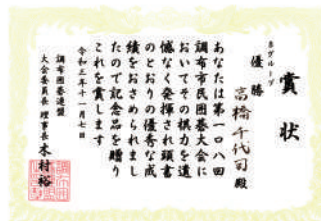 賞状
Bグループ
優勝
高橋千代司殿
あなたは第一〇八回
調布市民囲碁大会に
おいてその棋力を遺
憾なく発揮され頭書
のとおりの優秀な成
績をおさめられまし
たので記念品を贈り
これを賞します
令和三年十一月七日
調布囲碁連盟
大会委員長 理事長 木村裕